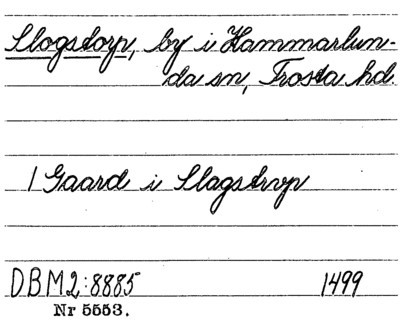 Slogstorp, by i Hammarlun-
da sn, Frosta hd.
1 Gaard i Slagstrvp
DBM2:8885 1499
Nr 5553.